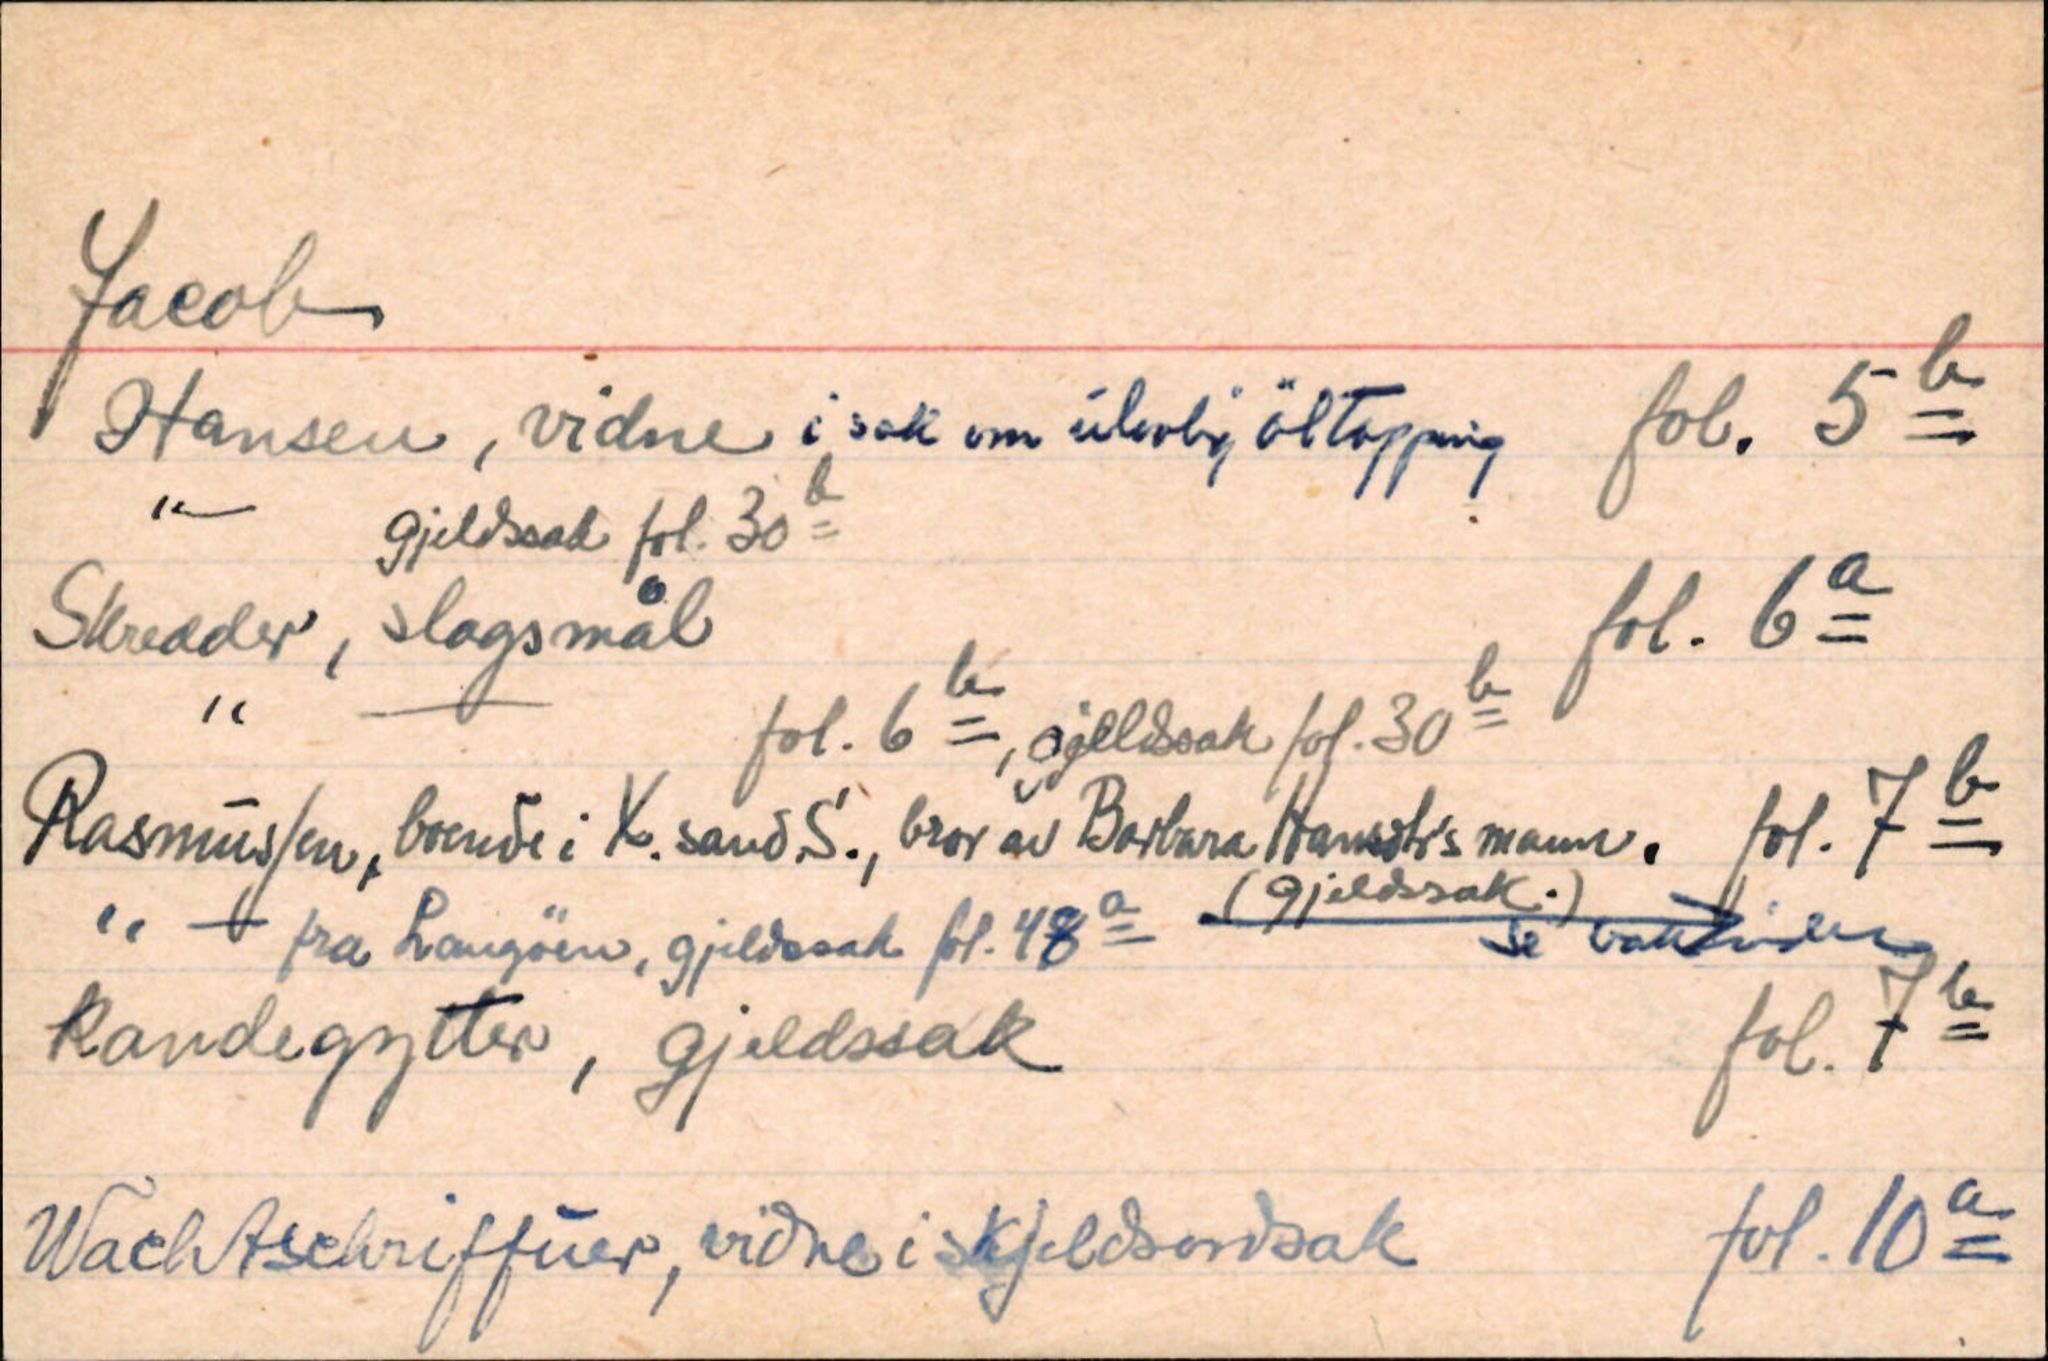 Jacob
Hansen, vidne i sak om ulovlig öltapping fol. 5b
" — gjeldssak fol. 30b
Skredder, slagsmål fol. 6a
" — fol. 6b, gjeldssak fol. 30b
Rasmussen, boende i X.sand S., bror av Barbara Hansdtr's mann. fol. 7b
(gjeldssak.)
" — fra Langöen, gjeldssak fol. 48a se baksiden
Kandegytter, gjeldssak fol. 7b
Wachtschriffuer, vidne i skjeldsordsak fol. 10a